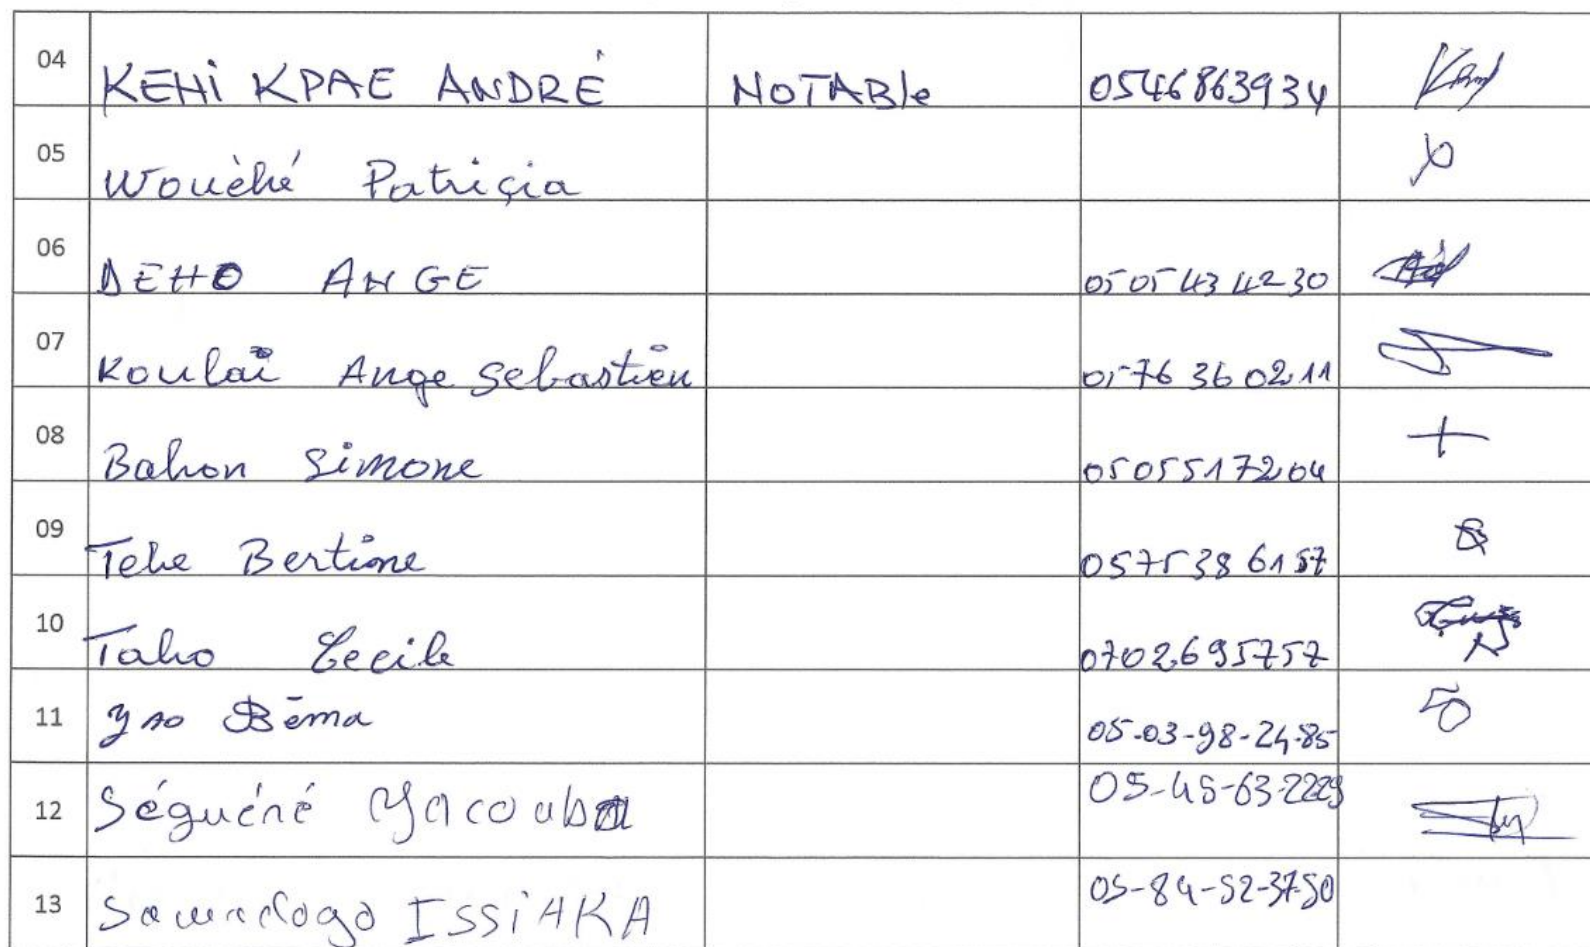 04 KEHi KPAE ANDRÉ NOTABle 0546863934
05 Wouèhé Patriçia
06 DEHO ANGE 05 05 43 42 30
07 Koulaï Ange Sebastien 05 76 36 02 11
08 Bahon Simone 05 05 51 72 04
09 Tehe Bertine 05 75 38 61 57
10 Taho Cecile 0702695757
11 Yao Bêma 05-03-98-24-85
12 Séguéné Yacouba 05-45-63-2229
13 Sawadogo ISSiAKA 05-84-52-37-50